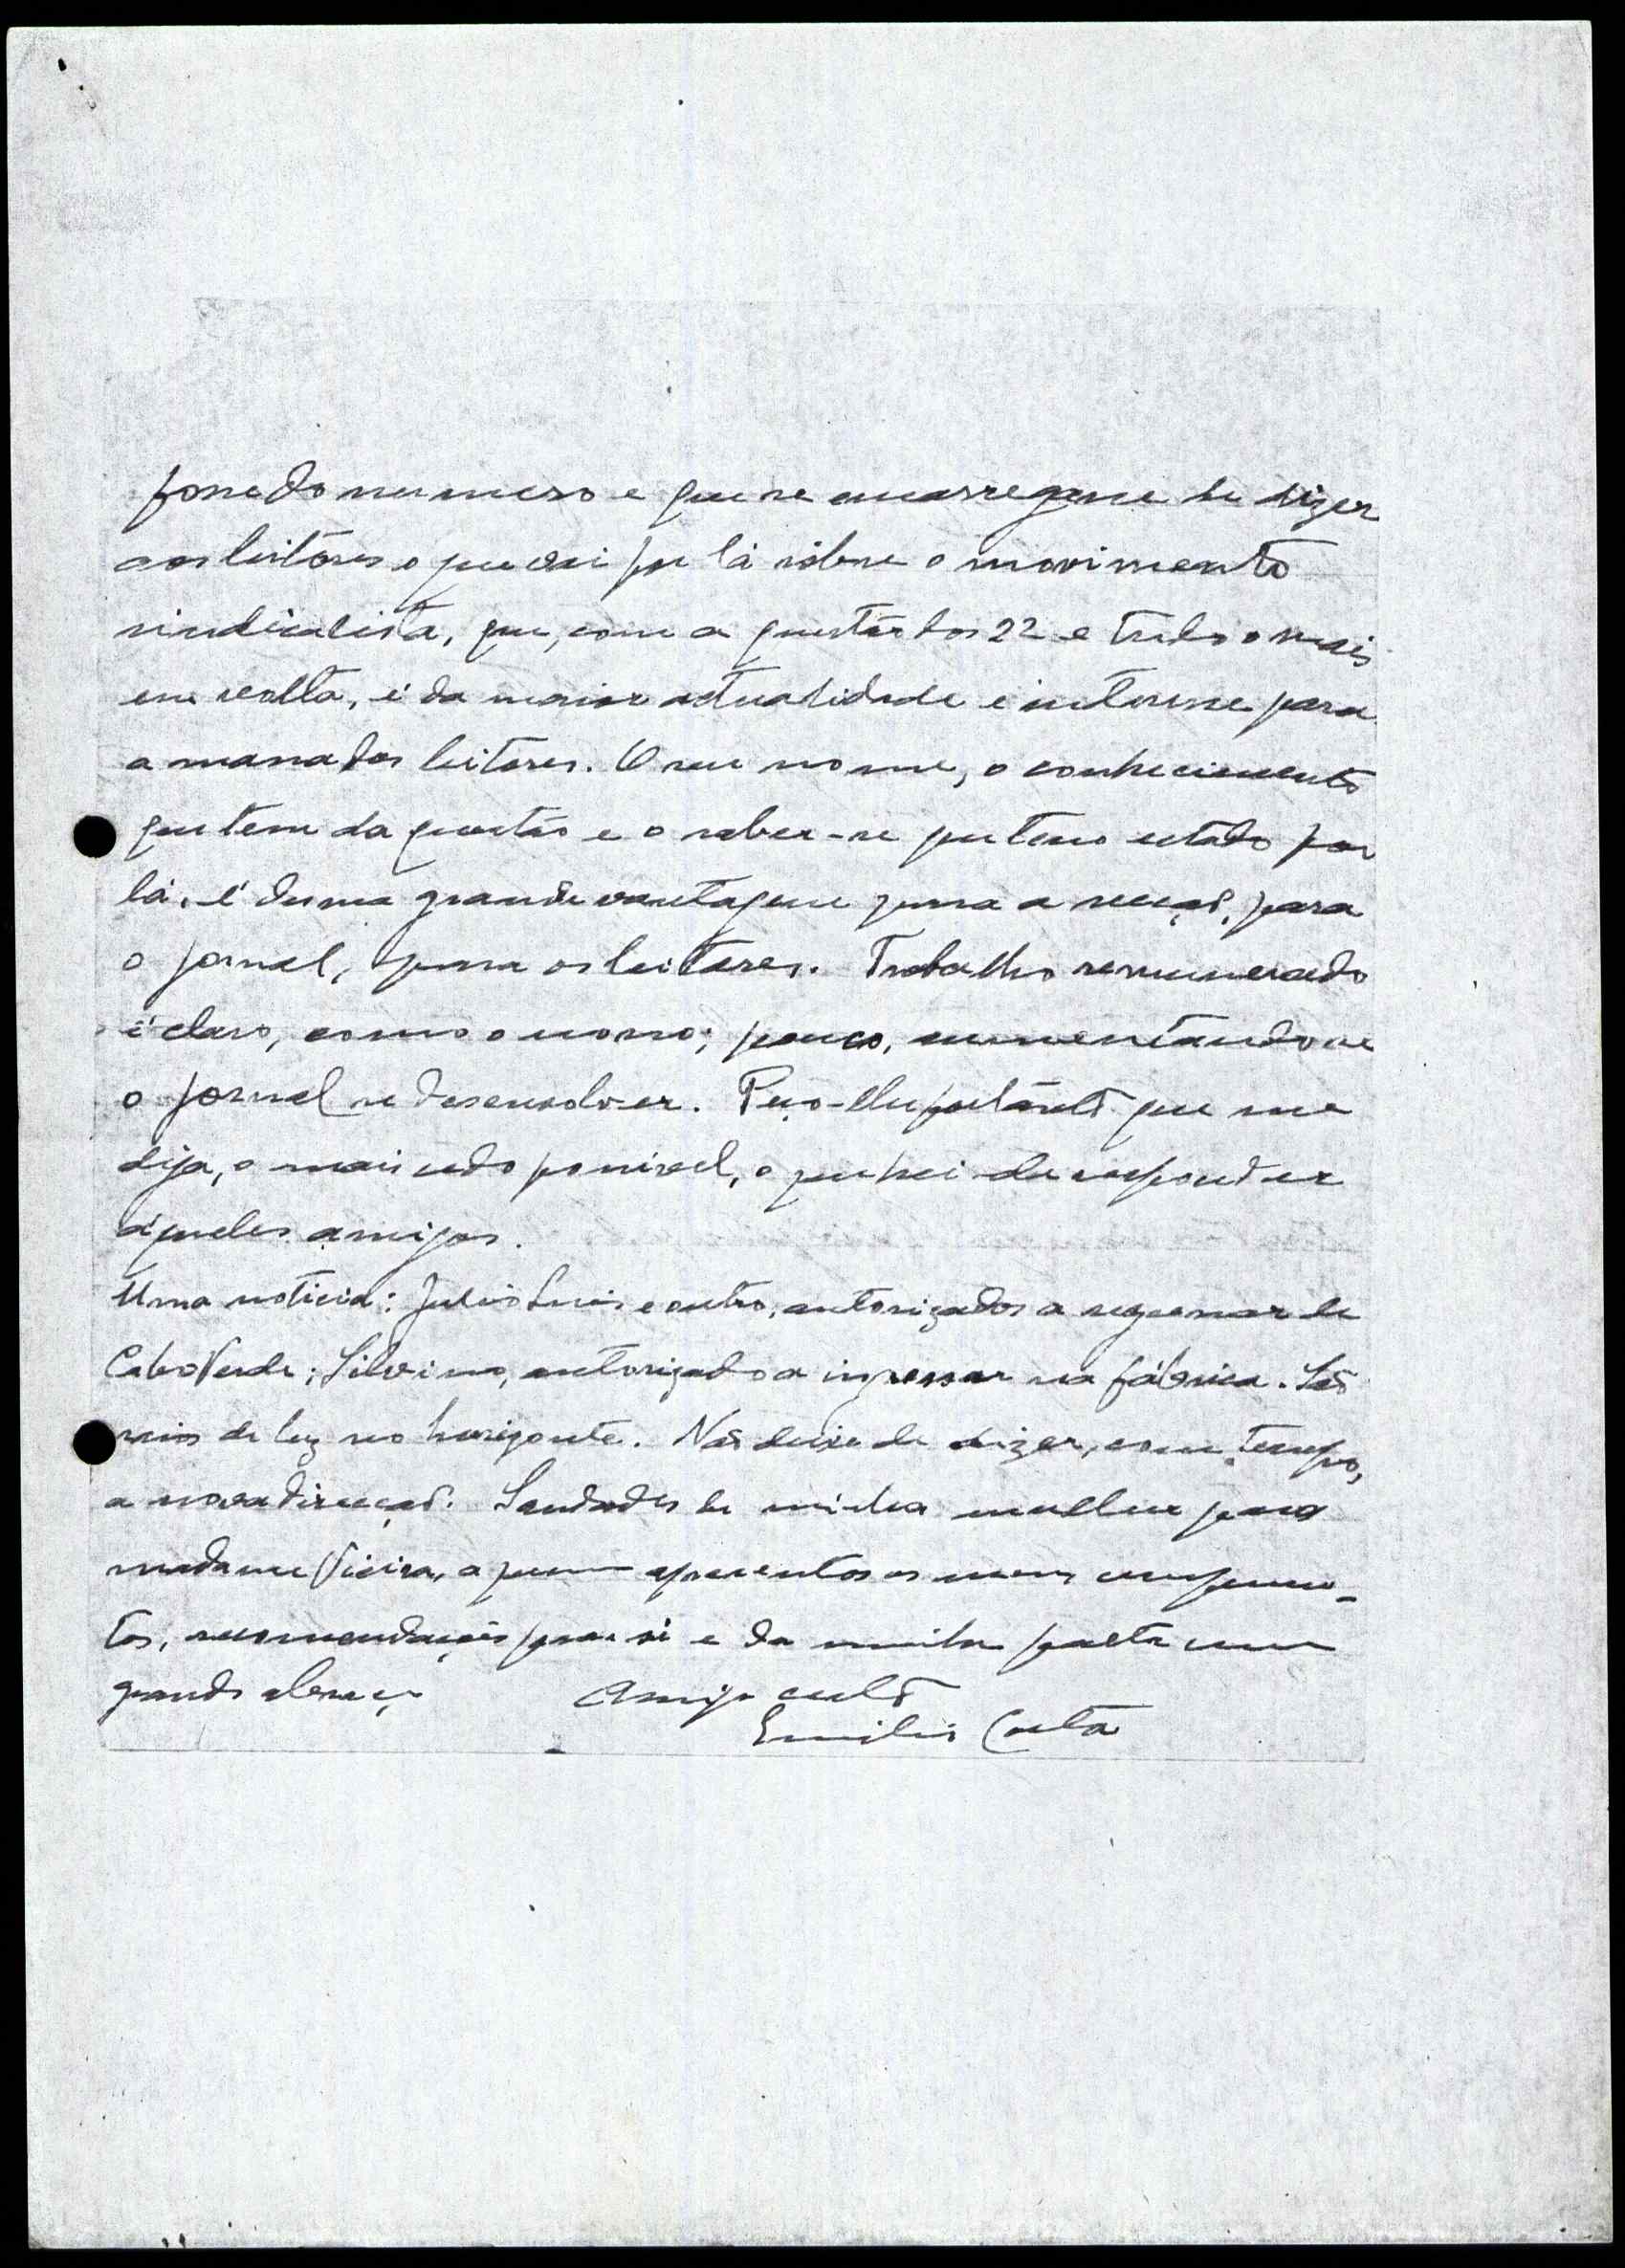 fosse do numero e que se encarregasse de dizer
aos leitores o que vai por lá sôbre o movimento
sindicalista, que, com a questão dos 22 e tudo o mais
em volta, é da maior actualidade e interesse para
a massa dos leitores. O seu nome, o conhecimento
que tem da questão e o saber-se que tem estado por
lá, é duma grande vantagem para a secção, para
o jornal, para os leitores. Trabalho remunerado
é claro, como o nosso; pouco, aumentando se
o jornal se desenvolver. Peço-lhe portanto que me
diga, o mais cedo possivel, o que hei-de responder
áqueles amigos.
Uma noticia: Julio Luis e outro, autorizados a regressar de
Cabo Verde; Silvino, autorizado a ingressar na fábrica. São
raios de luz no horizonte. Não deixe de dizer, com tempo,
a nova direcção. Saudades de minha mulher para
madame Vieira, a quem apresento os meus cumprimen-
tos, recomendações para si e da minha parte um
grande abraço Amigo certo
Emilio Costa